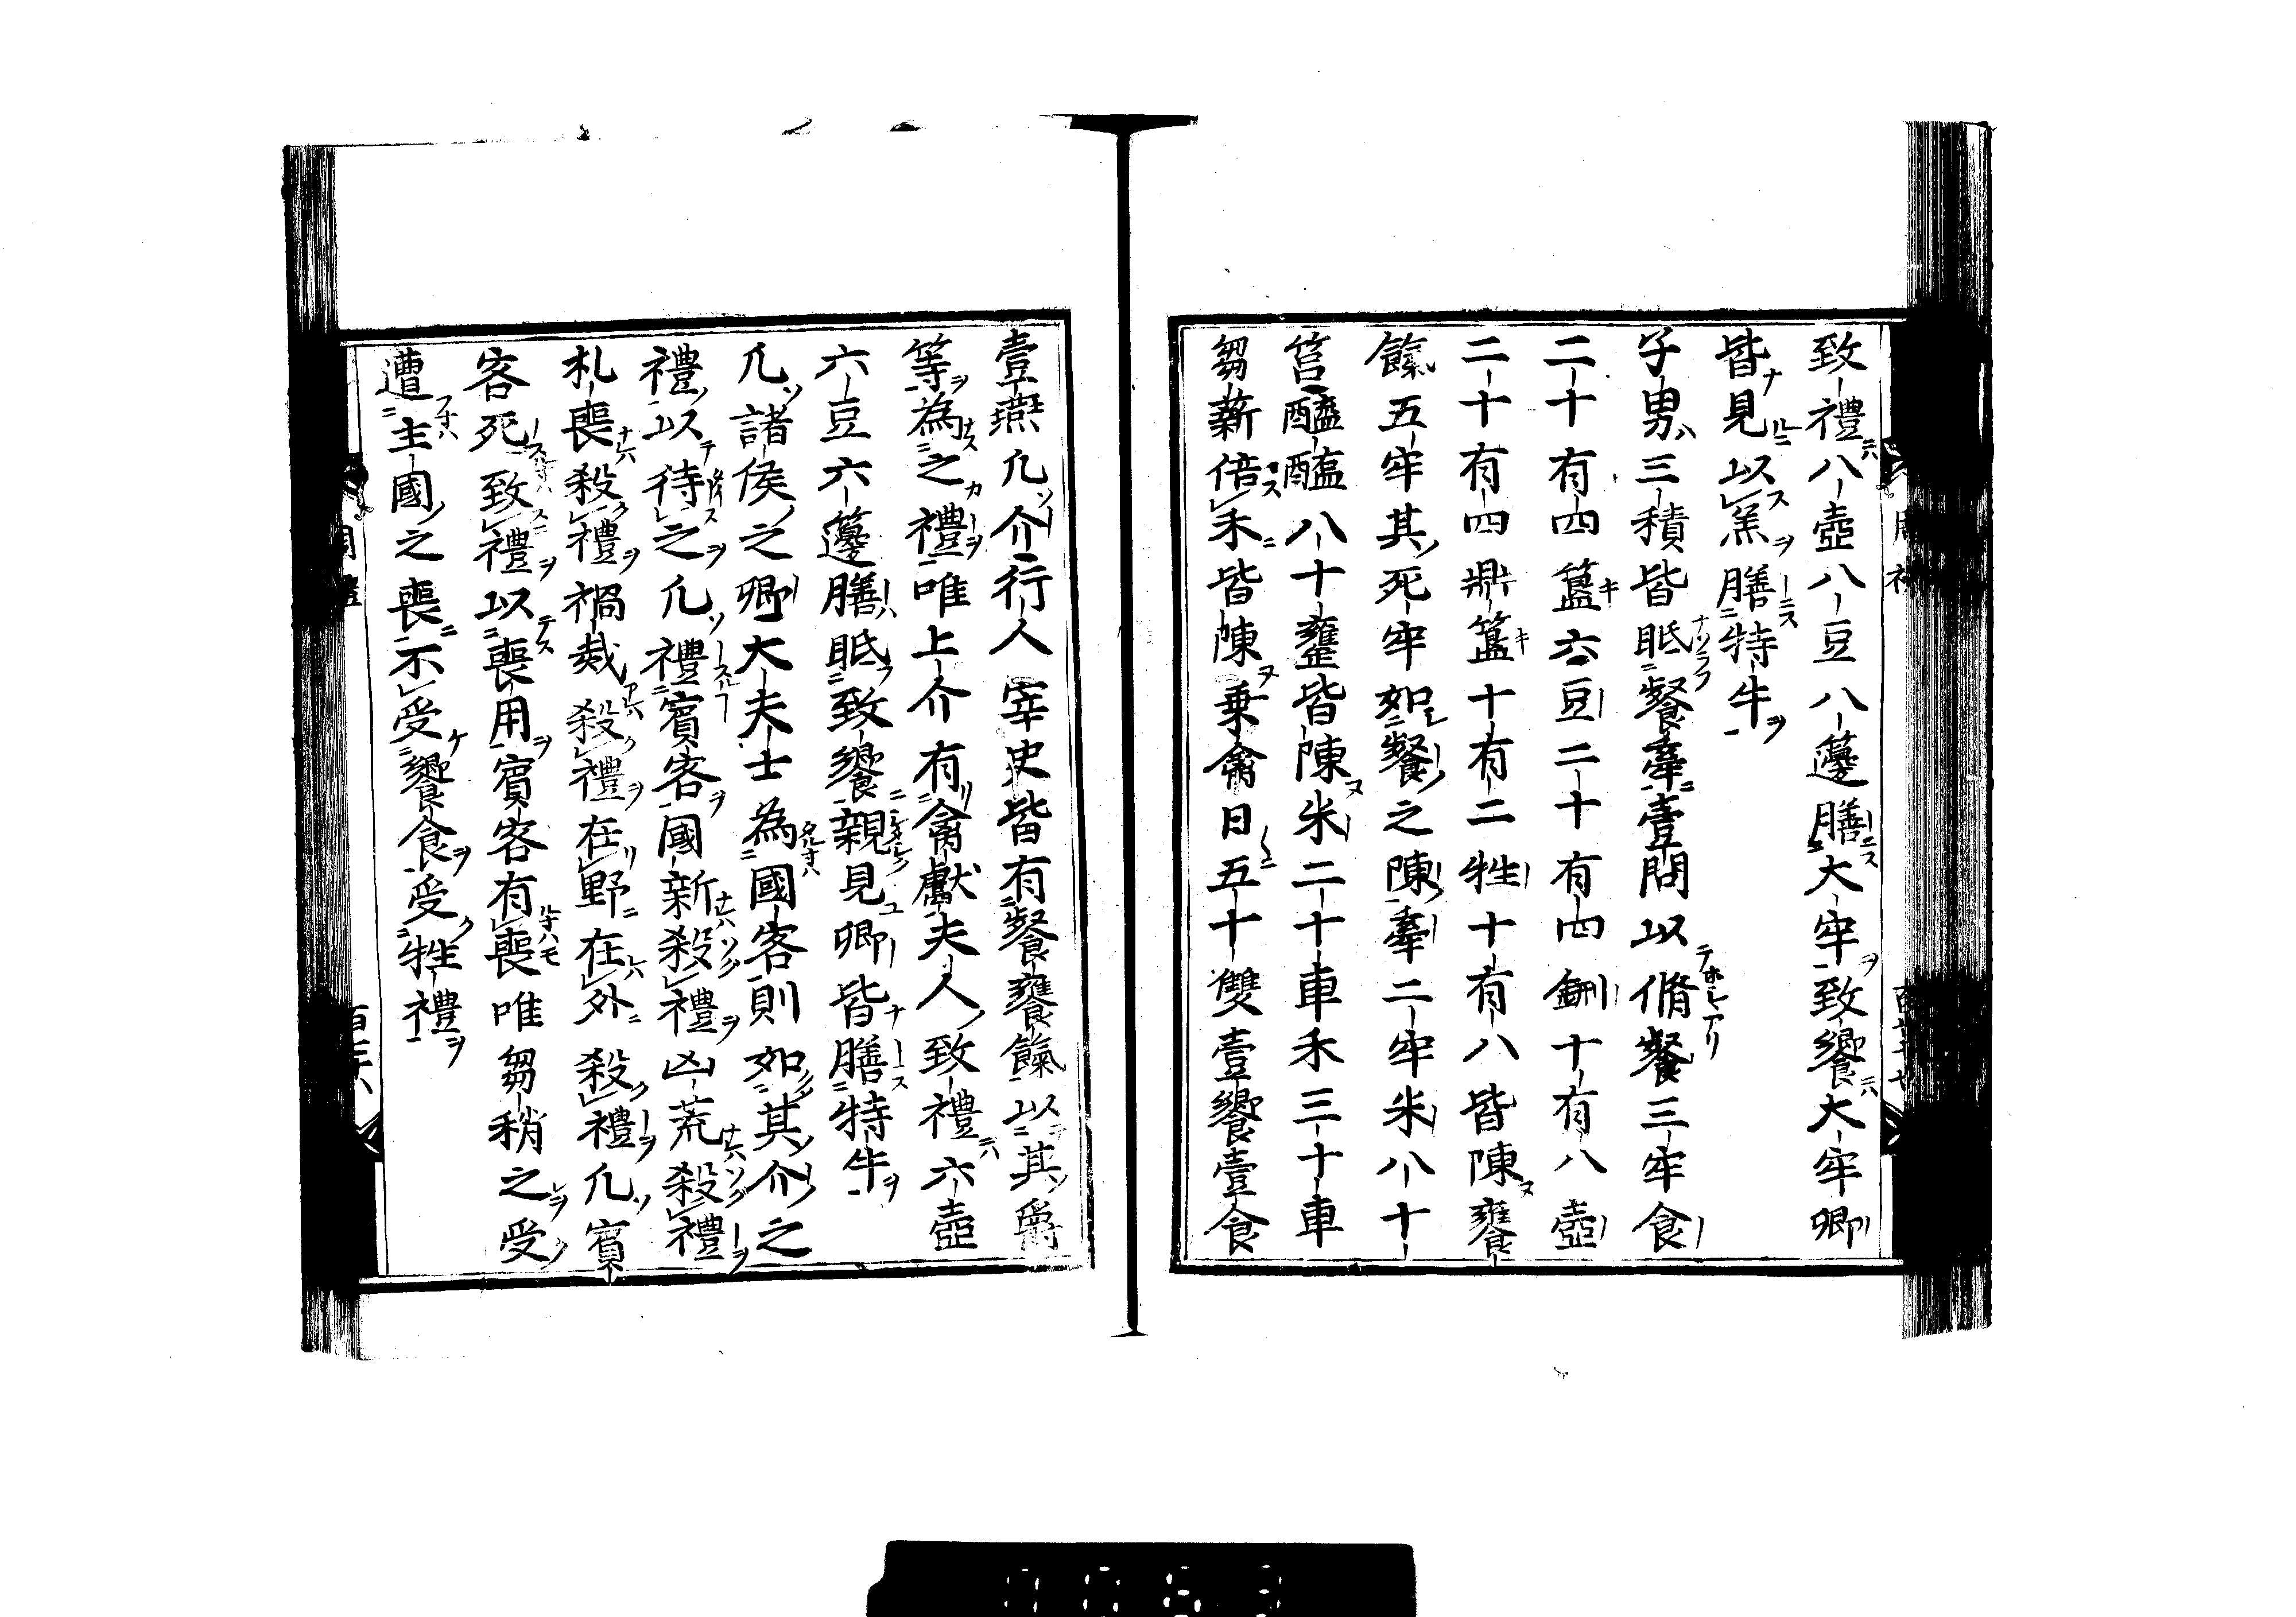 致禮八壺八豆八籩膳大牢致饗大牢卿
皆見以羔膳特牛
子男三積皆眂餐牽壹問以脩餐三牢食
二十有四簠六豆二十有四鉶十有八壺
二十有四鼎簋十有二牲十有八皆陳饔
餼五牢其死牢如餐之陳牽二牢米八十
筥醯醢八十罋皆陳米二十車禾三十車
芻薪倍禾皆陳乗禽日五十雙壹饗壹食
壹燕凢介行人宰史皆有餐饔餼以其爵
等為之禮唯上介有禽獻夫人致禮六壺
六豆六籩膳眂致饗親見卿皆膳特牛
凢諸侯之卿大夫士為國客則如其介之
禮以待之凢禮賓客國新殺禮凶荒殺禮
札喪殺禮禍烖殺禮在野在外殺禮凢賓
客死致禮以喪用賓客有喪唯芻稍之受
遭主國之喪不受饗食受牲禮